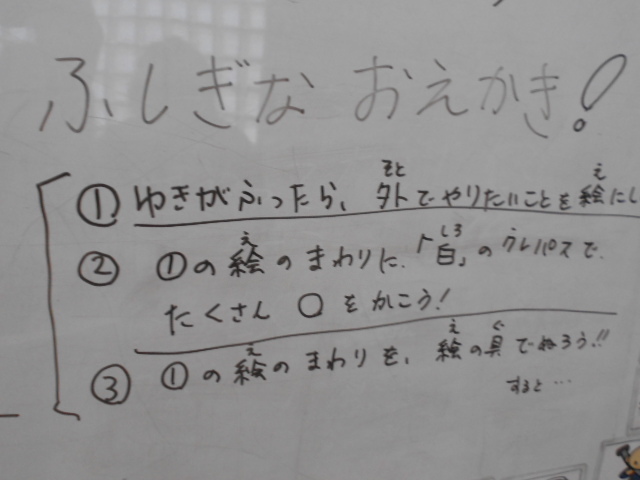 ふしぎな おえかき!
① ゆきがふったら、外でやりたいことを絵にし
そと え
② ①の絵のまわりに、「白」のクレパスで、
え しろ
たくさん ○ をかこう!
③ ①の絵のまわりを、絵の具でぬろう!!
え え ぐ
すると…